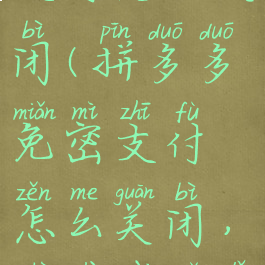 bì pīn duō duō
闭(拼多多
miǎn mì zhī fù
免密支付
zěn me guān bì
怎么关闭,